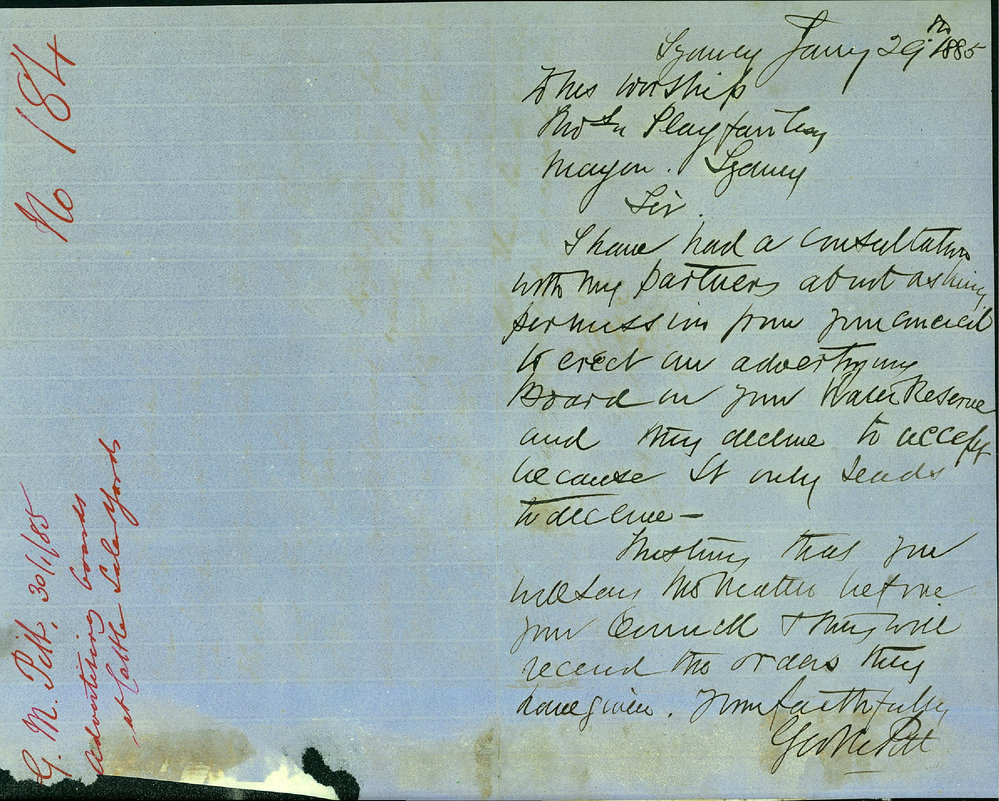 No 184
G. M. Pitt, 30/1/85
Advertising boards
at Cattle Sale Yards
Sydney Jany 29th 1885
To his Worship
Playfair Esq
Mayor. Sydney
Sir.
I have had a consultation
with my partners about asking
permission from your Council
to erect an advertising
Board on your Water Reserve
and they decline to accept
because it only leads
to decline—
Trusting that you
will lay the matter before
your Council & they will
rescind the orders they
have given. Yours faithfully
Geo M Pitt